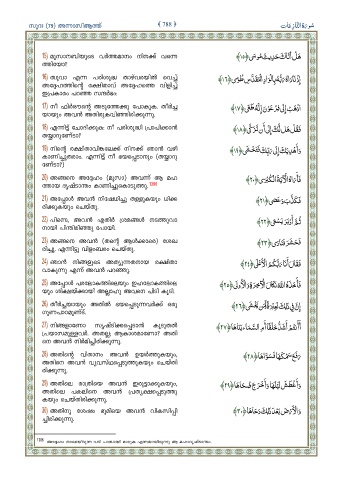 സൂറ (79) അന്നാസിആത്ത്
788
سورة النازعات
15) മൂസാനബിയുടെ വർത്തമാനം നിനക്ക് വന്നെ
ത്തിയോ?
هَلْ أَتَاكَ حَدِيثُ مُوسَىٰ ﴿١٥﴾
16) ത്വുവാ എന്ന പരിശുദ്ധ താഴ്‌വരയിൽ വെച്ച്
അദ്ദേഹത്തിന്റെ രക്ഷിതാവ് അദ്ദേഹത്തെ വിളിച്ച്
ഇപ്രകാരം പറഞ്ഞ സന്ദർഭം:
إِذْ نَادَاهُ رَبُّهُ بِالْوَادِ الْمُقَدَّسِ طُوًى ﴿١٦﴾
17) നീ ഫിർഔന്റെ അടുത്തേക്കു പോകുക. തീർച്ച
യായും അവൻ അതിരുകവിഞ്ഞിരിക്കുന്നു.
اذْهَبْ إِلَىٰ فِرْعَوْنَ إِنَّهُ طَغَىٰ ﴿١٧﴾
18) എന്നിട്ട് ചോദിക്കുക: നീ പരിശുദ്ധി പ്രാപിക്കാൻ
തയ്യാറുണ്ടോ?
فَقُلْ هَل لَّكَ إِلَىٰ أَن تَزَكَّىٰ ﴿١٨﴾
19) നിന്റെ രക്ഷിതാവിങ്കലേക്ക് നിനക്ക് ഞാൻ വഴി
കാണിച്ചുതരാം. എന്നിട്ട് നീ ഭയപ്പെടാനും (തയ്യാറു
ണ്ടോ?)
وَأَهْدِيَكَ إِلَىٰ رَبِّكَ فَتَخْشَىٰ ﴿١٩﴾
20) അങ്ങനെ അദ്ദേഹം (മൂസാ) അവന്ന് ആ മഹ
ത്തായ ദൃഷ്ടാന്തം കാണിച്ചുകൊടുത്തു.
فَأَرَاهُ الْآيَةَ الْكُبْرَىٰ ﴿٢٠﴾
21) അപ്പോൾ അവൻ നിഷേധിച്ചു തള്ളുകയും ധിക്ക
രിക്കുകയും ചെയ്തു.
فَكَذَّبَ وَعَصَىٰ ﴿٢١﴾
22) പിന്നെ, അവൻ എതിർ ശ്രമങ്ങൾ നടത്തുവാ
നായി പിന്തിരിഞ്ഞു പോയി.
ثُمَّ أَدْبَرَ يَسْعَىٰ ﴿٢٢﴾
23) അങ്ങനെ അവൻ (തന്റെ ആൾക്കാരെ) ശേഖ
രിച്ചു. എന്നിട്ടു വിളംബരം ചെയ്തു.
فَحَشَرَ فَنَادَىٰ ﴿٢٣﴾
24) ഞാൻ നിങ്ങളുടെ അത്യുന്നതനായ രക്ഷിതാ
വാകുന്നു എന്ന് അവൻ പറഞ്ഞു.
فَقَالَ أَنَا رَبُّكُمُ الْأَعْلَىٰ ﴿٢٤﴾
25) അപ്പോൾ പരലോകത്തിലെയും ഇഹലോകത്തിലെ
യും ശിക്ഷയ്ക്കായി അല്ലാഹു അവനെ പിടി കൂടി.
فَأَخَذَهُ اللَّهُ نَكَالَ الْآخِرَةِ وَالْأُولَىٰ ﴿٢٥﴾
26) തീർച്ചയായും അതിൽ ഭയപ്പെടുന്നവർക്ക് ഒരു
ഗുണപാഠമുണ്ട്.
إِنَّ فِي ذَٰلِكَ لَعِبْرَةً لِّمَن يَخْشَىٰ ﴿٢٦﴾
27) നിങ്ങളാണോ സൃഷ്ടിക്കപ്പെടാൻ കൂടുതൽ
പ്രയാസമുള്ളവർ. അതല്ല; ആകാശമാണോ? അതി
നെ അവൻ നിർമ്മിച്ചിരിക്കുന്നു.
أَأَنتُمْ أَشَدُّ خَلْقًا أَمِ السَّمَاءُ بَنَاهَا ﴿٢٧﴾
28) അതിന്റെ വിതാനം അവൻ ഉയർത്തുകയും,
അതിനെ അവൻ വ്യവസ്ഥപ്പെടുത്തുകയും ചെയ്തി
രിക്കുന്നു.
رَفَعَ سَمْكَهَا فَسَوَّاهَا ﴿٢٨﴾
29) അതിലെ രാത്രിയെ അവൻ ഇരുട്ടാക്കുകയും,
അതിലെ പകലിനെ അവൻ പ്രത്യക്ഷപ്പെടുത്തു
കയും ചെയ്തിരിക്കുന്നു.
وَأَغْطَشَ لَيْلَهَا وَأَخْرَجَ ضُحَاهَا ﴿٢٩﴾
30) അതിനു ശേഷം ഭൂമിയെ അവൻ വികസിപ്പി
ച്ചിരിക്കുന്നു.
وَالْأَرْضَ بَعْدَ ذَٰلِكَ دَحَاهَا ﴿٣٠﴾